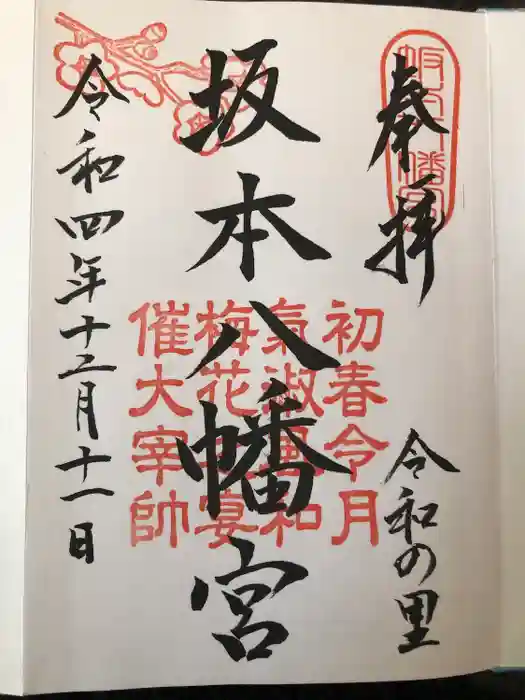 奉拝
令和の里
坂本八幡宮
初春令月
氣淑風和
梅花宴
催大宰帥
令和四年十二月十一日